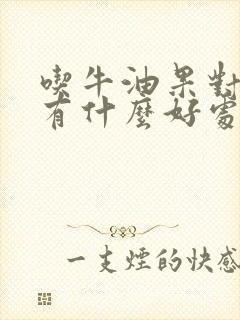 喫牛油果對
有什麼好處
一支煙的快感